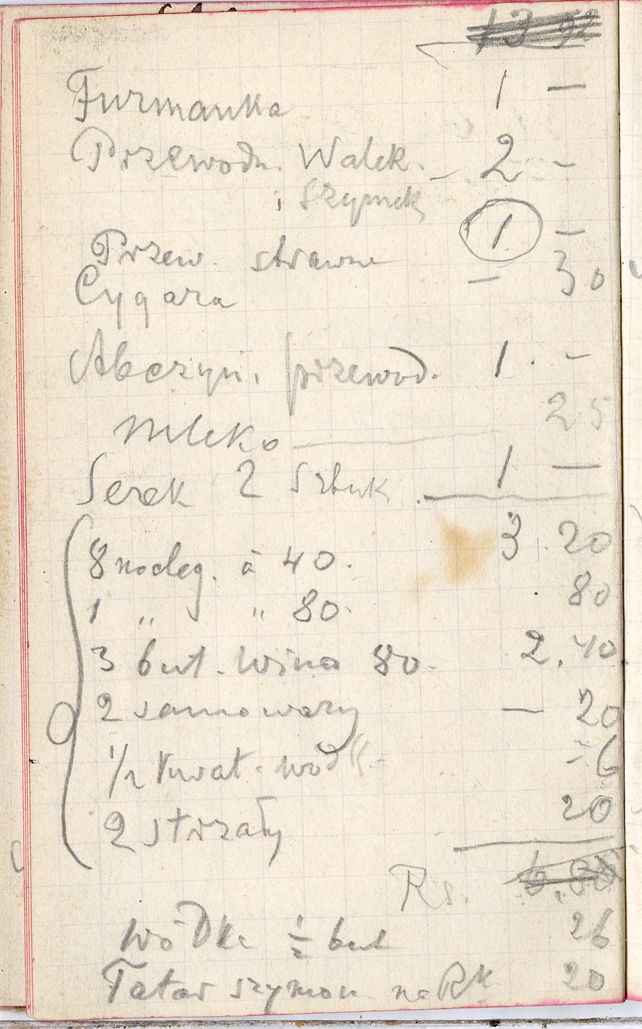 13 92
Furmanka 1 —
Przewodn. Walek. - 2 -
i Szymek
Przew. strawne 1 -
Cygara - 30
przewod. 1 . -
Mleko 25
Serek 2 sztuk . 1 —
8 nocleg. à 40. 3.20
1 " " 80. 80
3 but. wina 80. 2,40
2 samowary — 20
1/2 kwat. wódk - 6
2 strzały 20
Rs. 6,86
Wódki ½ but 26
Tatar szymon. na 20